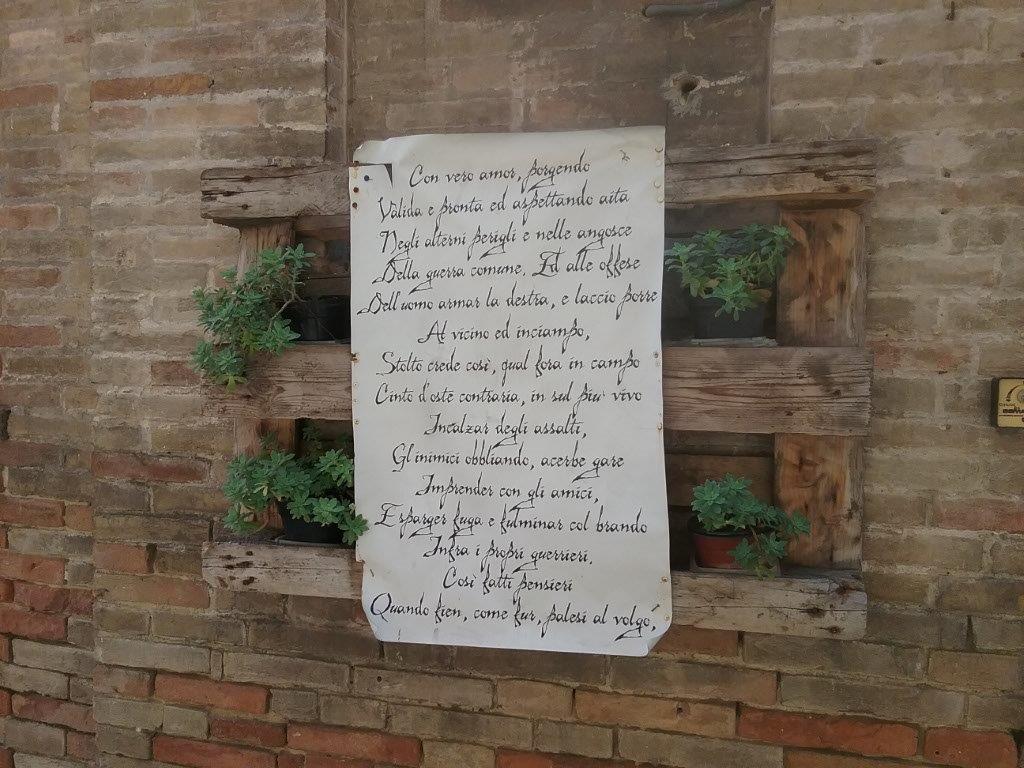 Con vero amor, porgendo
Valida e pronta ed aspettando aita
Negli alterni perigli e nelle angosce
Della guerra comune. Ed alle offese
Dell'uomo armar la destra, e laccio porre
Al vicino ed inciampo,
Stolto crede così, qual fora in campo
Cinto d'oste contraria, in sul più vivo
Incalzar degli assalti,
Gl'inimici obbliando, acerbe gare
Imprender con gli amici,
E sparger fuga e fulminar col brando
Infra i propri guerrieri.
Così fatti pensieri
Quando fien, come fur, palesi al volgo,